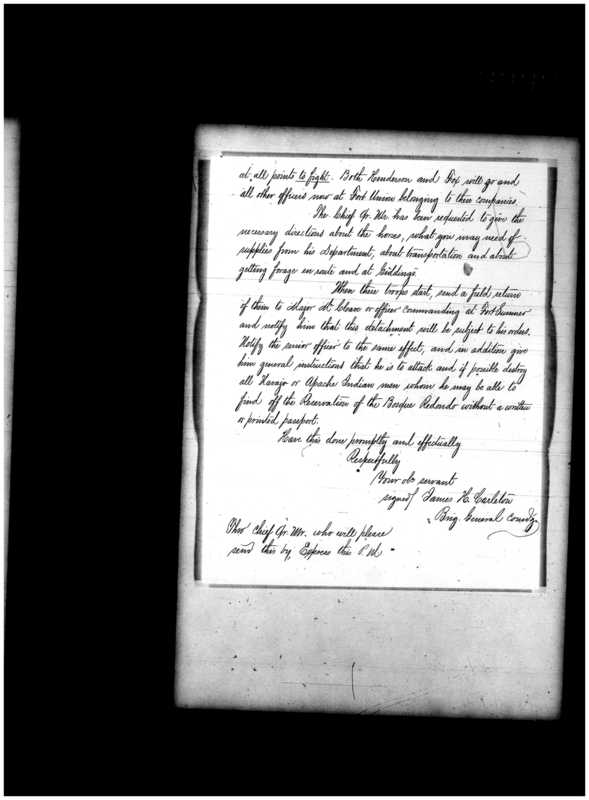 at all points to fight. Both Henderson and Fox will go and
all other officers now at Fort Union belonging to these companies.
The Chief Qr. Mr. has been requested to give the
necessary directions about the horses, what you may need of
supplies from his Department, about transportation and about
getting forage en route and at Giddings.
When these troops start, send a field return
of them to Major Mc Cleave or officer commanding at Fort Sumner
and notify him that this detachment will be subject to his orders.
Notify the senior officer to the same effect, and in addition give
him general instructions that he is to attack and if possible destroy
all Navajo or Apache Indian men whom he may be able to
find off the Reservation of the Bosque Redondo without a written
or printed passport.
Have this done promptly and effectually
Respectfully
Your obt servant
signed/ James H. Carleton
Brig. General Comdg.
Thro' Chief Qr. Mr. who will please
send this by Express this P.M.